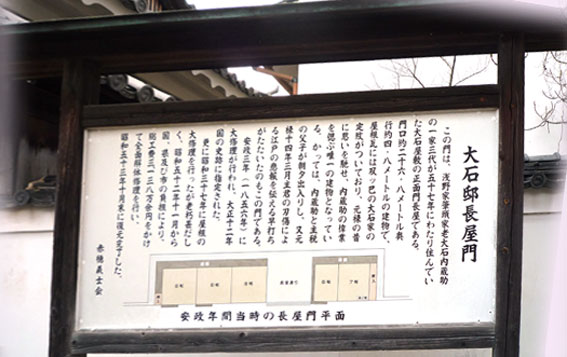 大石邸長屋門
この門は、浅野家筆頭家老大石内蔵助
の一家三代が五十七年にわたり住んでい
た大石屋敷の正面門長屋である。
門口約二十六・八メートル奥
行約四・八メートルの建物で、
屋根瓦には双ッ巴の大石家の
定紋がついており、元禄の昔
に思いを馳せ、内蔵助の偉業
を偲ぶ唯一の建物となってい
る。かつては、内蔵助と主税
の父子が朝夕出入りし、又元
禄十四年三月主君の刃傷によ
る江戸の悲報を伝える早打ち
がたたいたのもこの門である。
安政三年(一八五六年)に
大修理が行われ、大正十二年
国の史跡に指定された。
更に昭和三十七年に屋根の
大修理を行ったが老朽甚だし
く、昭和五十二年十一月から
国、県及び市の負担により、
総工費三一三八万余円をかけ
て全面解体修理を行い、
昭和五十三年十月末に復元完了した。
赤穂義士会
安政年間当時の長屋門平面